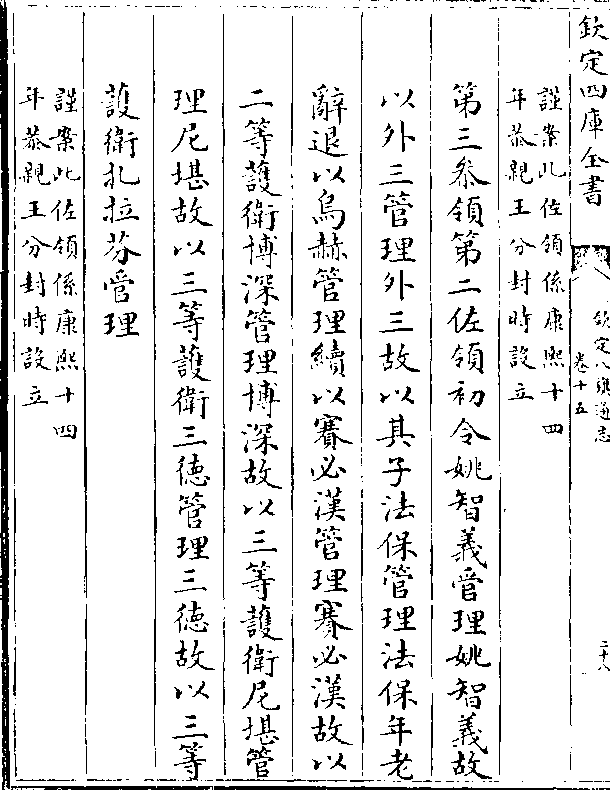 欽定四庫全書
欽定八旗通志
卷十五
二十八
謹案此佐領係康熙十四
年恭親王分封時設立
第三叅領第二佐領初令姚智義管理姚智義故
以外三管理外三故以其子法保管理法保年老
辭退以烏赫管理續以賽必漢管理賽必漢故以
二等護衛博深管理博深故以三等護衛尼堪管
理尼堪故以三等護衛三德管理三德故以三等
護衛扎拉芬管理
謹案此佐領係康熙十四
年恭親王分封時設立